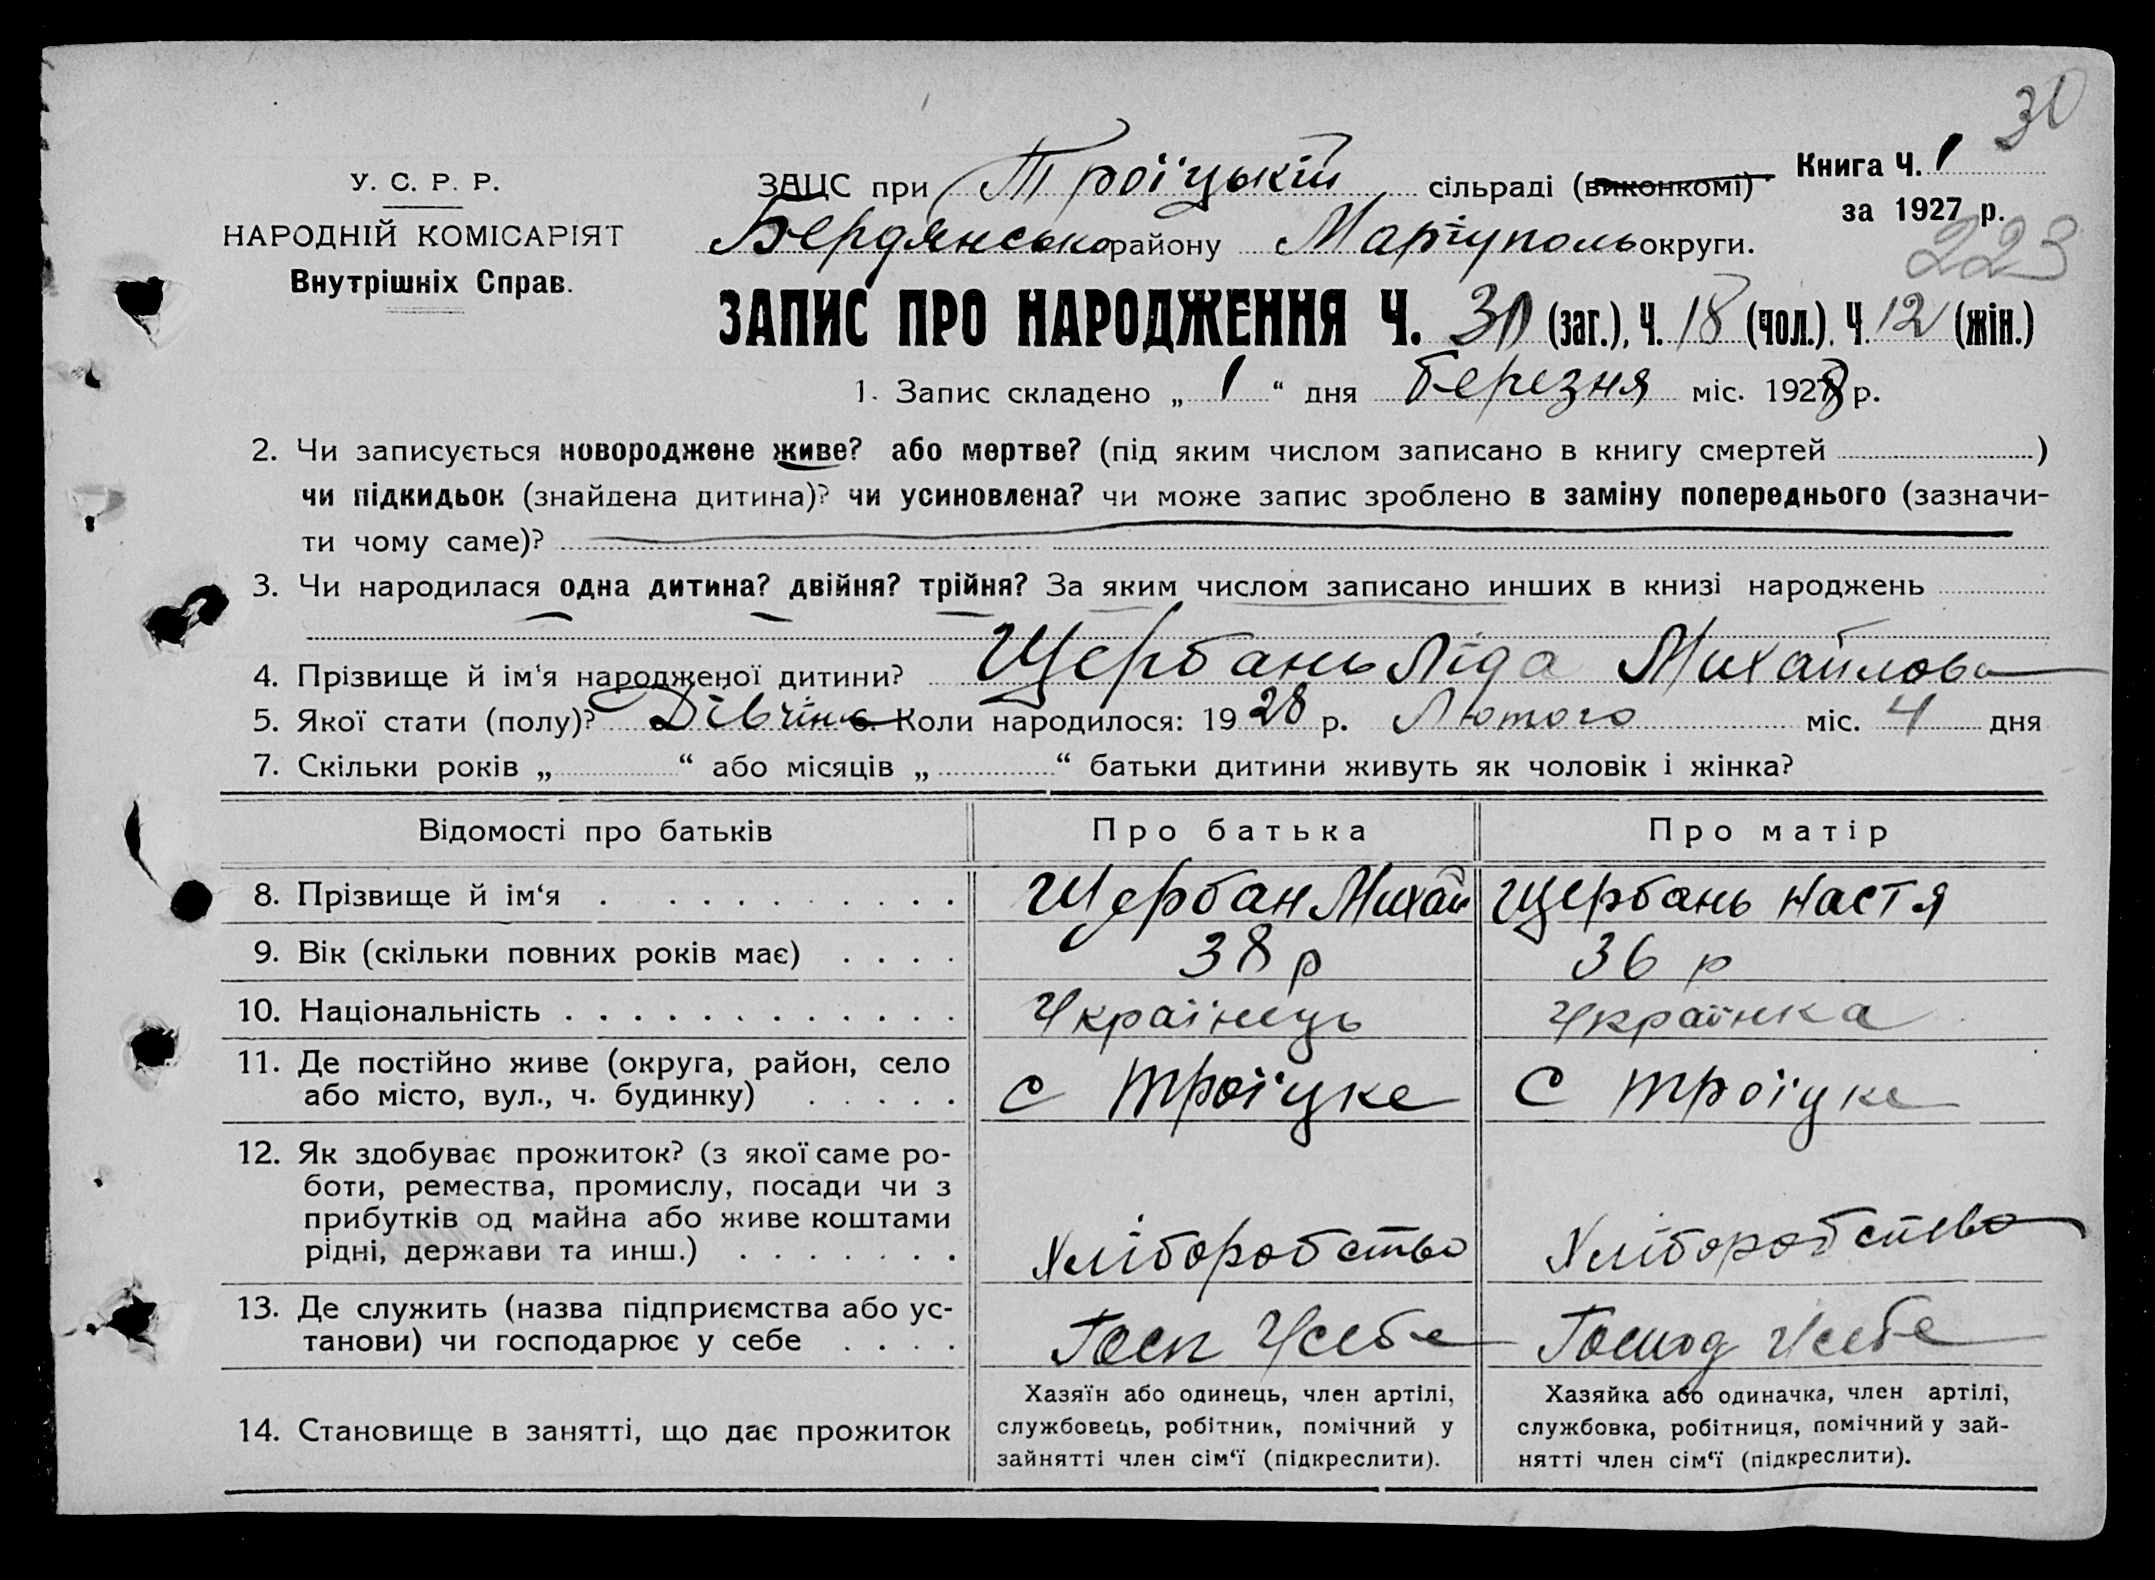 30
У. С. Р. Р.
НАРОДНІЙ КОМІСАРІЯТ
Внутрішніх Справ.
ЗАЦС при Троїцькій сільраді (виконкомі)
Книга Ч. 1
за 1927 р.
Бердянсько району Маріуполь округи.
223
ЗАПИС ПРО НАРОДЖЕННЯ Ч. 30 (заг.), Ч. 18 (чол.), Ч. 12 (жін.)
1. Запис складено „ 1 “ дня Березня міс. 1928 р.
2. Чи записується новороджене живе? або мертве? (під яким числом записано в книгу смертей )
чи підкидьок (знайдена дитина)? чи усиновлена? чи може запис зроблено в заміну попереднього (зазначи-
ти чому саме)?
3. Чи народилася одна дитина? двійня? трійня? За яким числом записано инших в книзі народжень
4. Прізвище й ім‘я народженої дитини? Щербань Ліда Михайлова
5. Якої стати (полу)? Дівчина 6. Коли народилося: 1928 р. Лютого міс. 4 дня
7. Скільки років „ “ або місяців „ “ батьки дитини живуть як чоловік і жінка?
Відомості про батьків Про батька Про матір
8. Прізвище й ім‘я Щербан Михай Щербань Настя
9. Вік (скільки повних років має) 38 р 36 р
10. Національність Українець Українка
11. Де постійно живе (округа, район, село
або місто, вул., ч. будинку) с Троїцке С Троїцке
12. Як здобуває прожиток? (з якої саме ро-
боти, ремества, промислу, посади чи з
прибутків од майна або живе коштами
рідні, держави та инш.) Хліборобство Хліборобство
13. Де служить (назва підприємства або ус-
танови) чи господарює у себе Госп Усебе Господ Усебе
14. Становище в занятті, що дає прожиток
Хазяїн або одинець, член артілі,
службовець, робітник, помічний у
зайнятті член сім‘ї (підкреслити).
Хазяйка або одиначка, член артілі,
службовка, робітниця, помічний у зай-
нятті член сім‘ї (підкреслити).